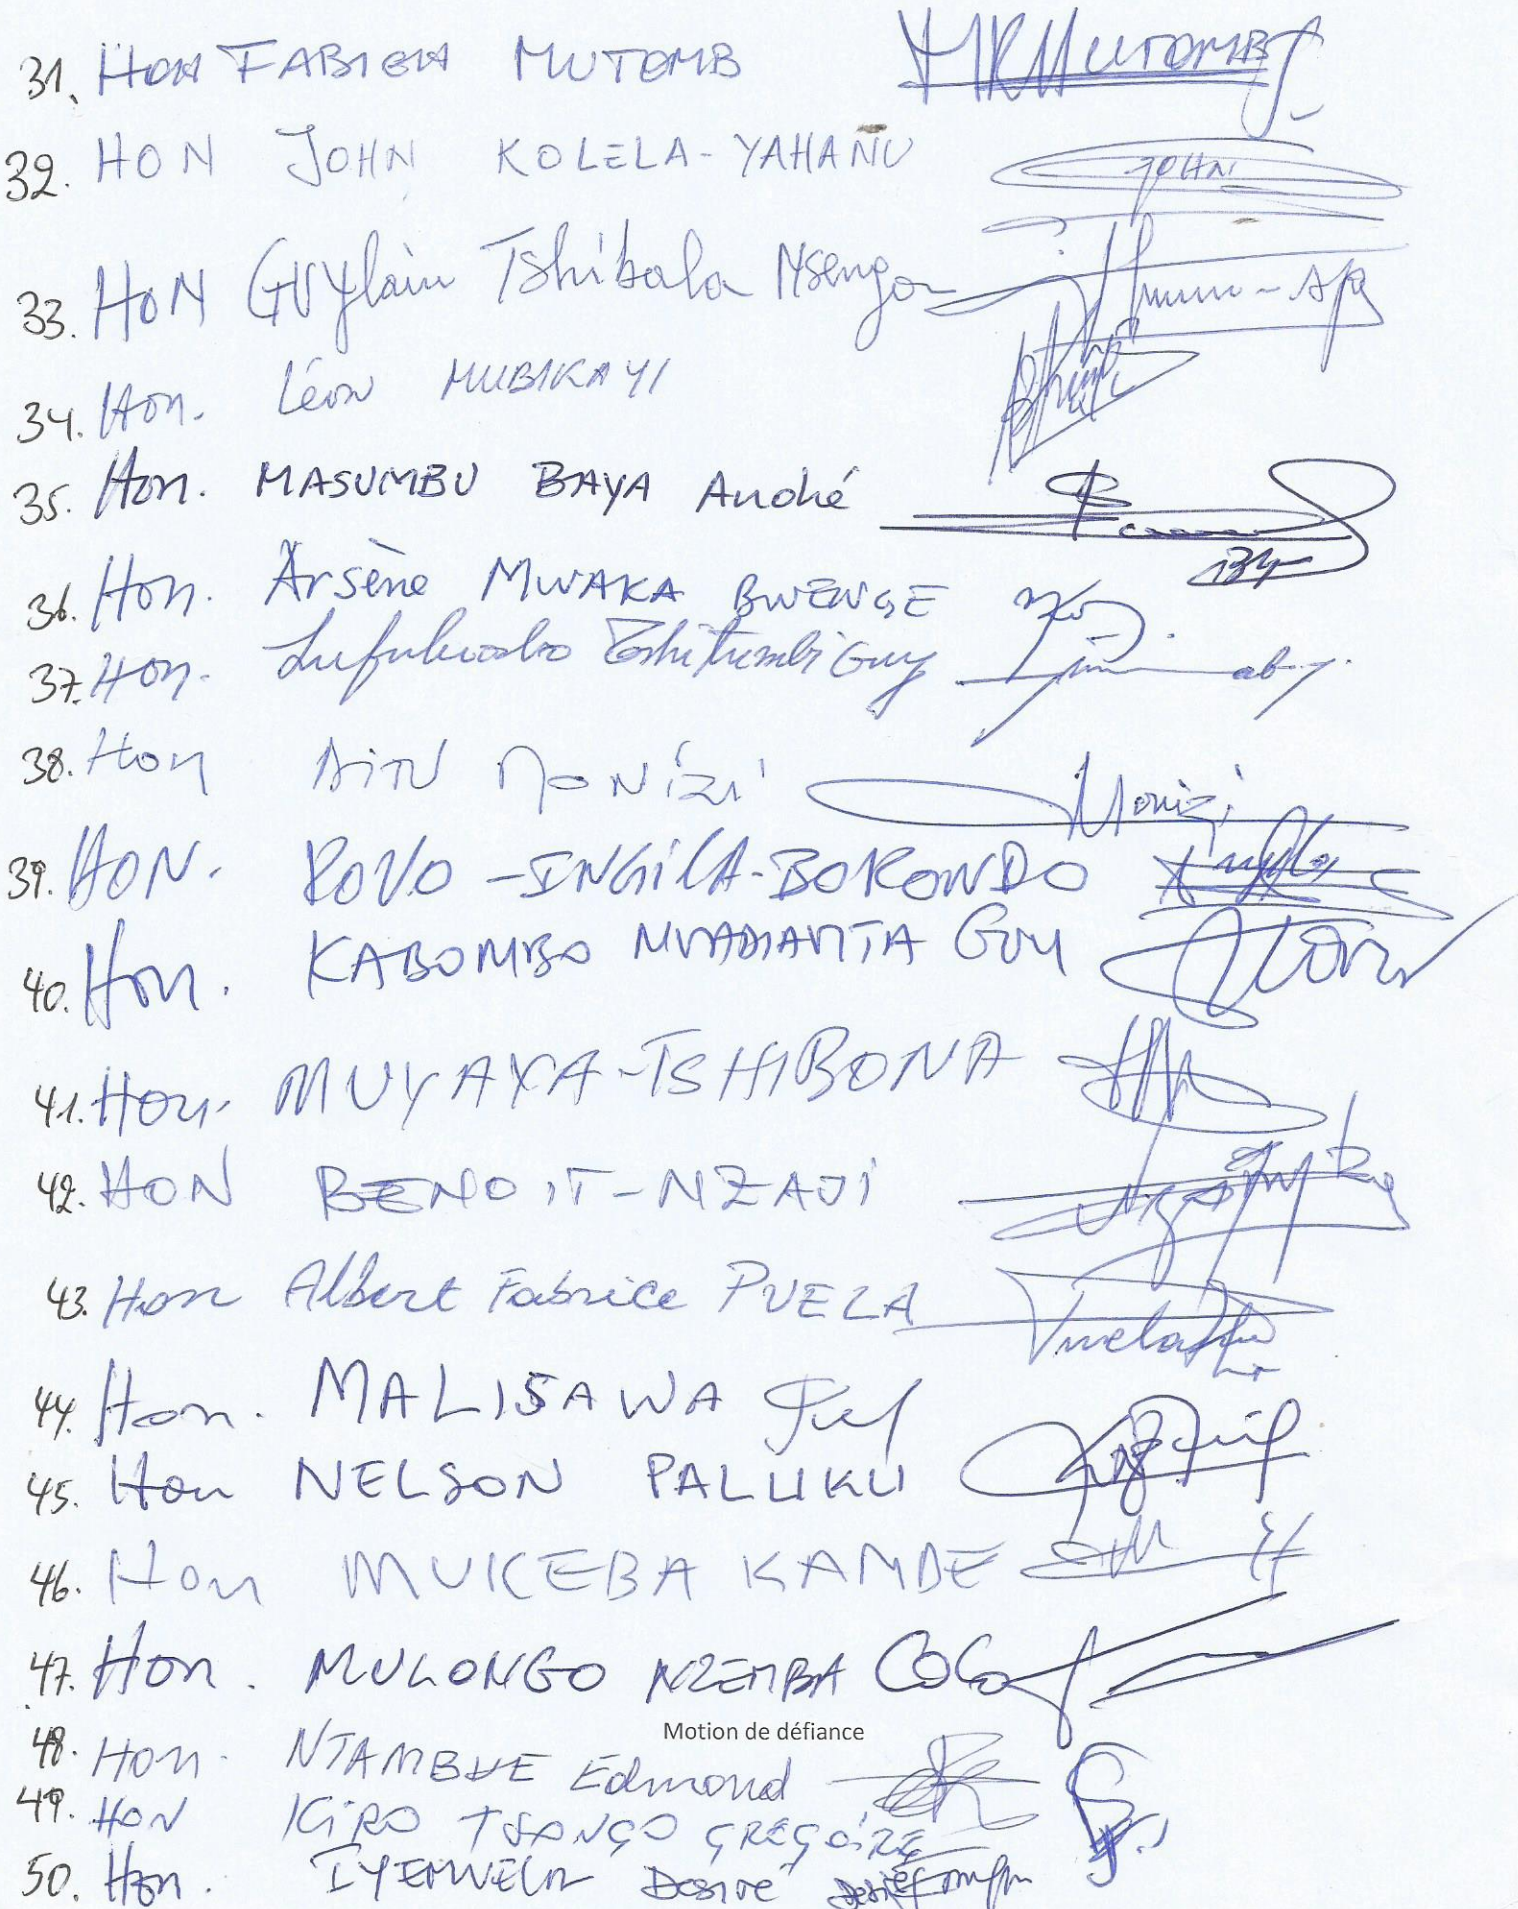 31. Hon FABIEN MUTOMB MRMUTOMB
32. HON JOHN KOLELA-YAHANU JOHN
33. HON GUYlain Tshibala Nsenga
34. Hon. Léon MUBIKAYI
35. Hon. MASUMBU BAYA André
36. Hon. Arsène MWAKA BWENGE
37. Hon. Lufulwabo Tshitumbi Guy
38. Hon MONIZI Monizi
39. HON. BORONDO
40. Hon. KABOMBO Guy
41. Hon. MUYAYA-TSHIBONA
42. HON BENOIT-NZAJI
43. Hon Albert Fabrice PUELA Puela
44. Hon. MALISAWA
45. Hon NELSON PALUKU
46. Hon MUKEBA KAMBE
47. Hon. MULONGO NZEMBA COCO
Motion de défiance
48. Hon. NTAMBWE Edmond
49. HON KIRO TSONGO GREGOIRE
50. Hon. Desiré